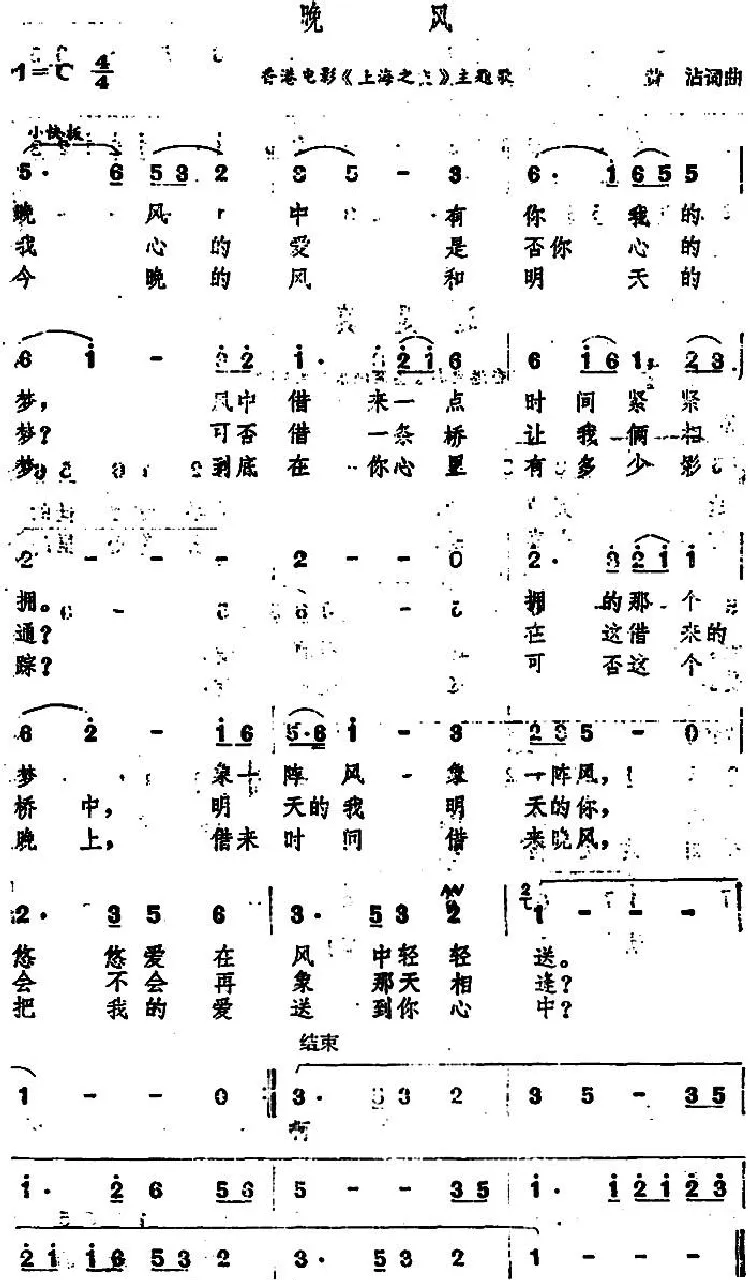 晚 风
1=C 4/4 香港电影《上海之》主题歌 沾词曲
小快板
5· 6 5 3 2 3 5 - 3 6· i 6 5 5
晚 风 中 有 你 我 的
我 心 的 爱 是 否你 心 的
今 晚 的 风 和 明 天 的
6 i - 3 2 i· 3 2 i 6 6 i 6 1 2 3
梦, 风中 借 来 一 点 时 间 紧 紧
梦? 可否 借 一 条 桥 让 我 俩 相
梦 到底 在 你 心 里 有 多 少 影
2 - - - 2 - - 0 2· 3 2 i i
拥。 拥 的 那 个
通? 在 这 借 来 的
踪? 可 否 这 个
6 2 - i 6 5·6 i - 3 2 3 5 - 0
梦 象一 阵 风 象 一阵 风,
桥 中, 明 天的 我 明 天的 你,
晚 上, 借来 时 间 借 来晚 风,
2· 3 5 6 3· 5 3 2 1 - - -
悠 悠 爱 在 风 中 轻 轻 送。
会 不 会 再 象 那 天 相 逢?
把 我 的 爱 送 到 你 心 中?
结束
1 - - 0 3· 5 3 2 3 5 - 3 5
啊
i· 2 6 5 6 5 - - 3 5 i· i 2 i 2 3
2 i i 6 5 3 2 3· 5 3 2 1 - - -